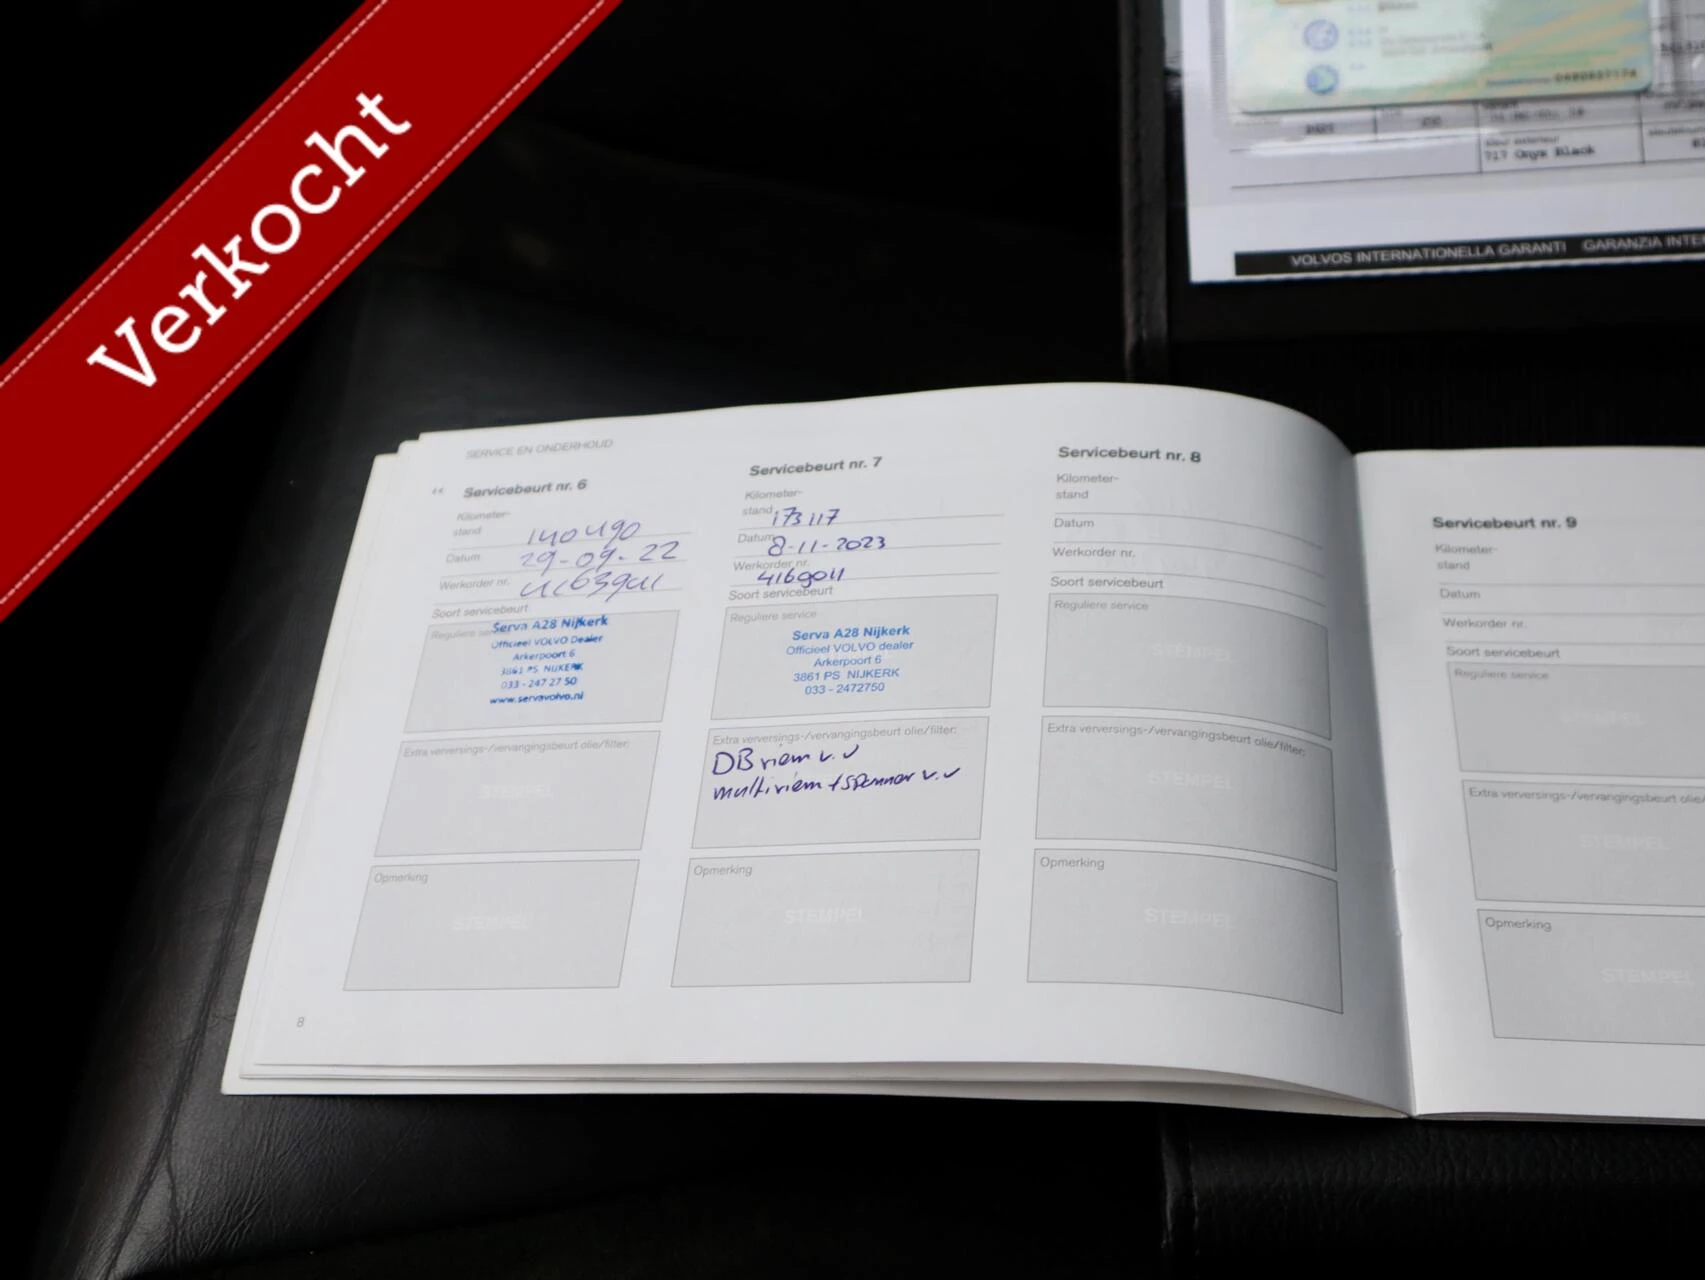 Verkocht
717 Onyx Black
VOLVOS INTERNATIONELLA GARANTI GARANZIA INTE
SERVICE EN ONDERHOUD
Servicebeurt nr. 6
Kilometer-
stand 140490
Datum 29-09-22
Werkorder nr.
Soort servicebeurt
Reguliere
Serva A28 Nijkerk
Officieel VOLVO Dealer
Arkerpoort 6
3861 PS NIJKERK
033 - 247 27 50
www.servavolvo.nl
Extra verversings-/vervangingsbeurt olie/filter:
STEMPEL
Opmerking
STEMPEL
8
Servicebeurt nr. 7
Kilometer-
stand 173117
Datum 8-11-2023
Werkorder nr. 4169011
Soort servicebeurt
Reguliere service
Serva A28 Nijkerk
Officieel VOLVO dealer
Arkerpoort 6
3861 PS NIJKERK
033 - 2472750
Extra verversings-/vervangingsbeurt olie/filter:
DB riem v.v
multiriem + spanner v.v
Opmerking
STEMPEL
Servicebeurt nr. 8
Kilometer-
stand
Datum
Werkorder nr.
Soort servicebeurt
Reguliere service
STEMPEL
Extra verversings-/vervangingsbeurt olie/filter:
STEMPEL
Opmerking
STEMPEL
Servicebeurt nr. 9
Kilometer-
stand
Datum
Werkorder nr.
Soort servicebeurt
Reguliere service
STEMPEL
Extra verversings-/vervangingsbeurt olie/
STEMPEL
Opmerking
STEMPEL